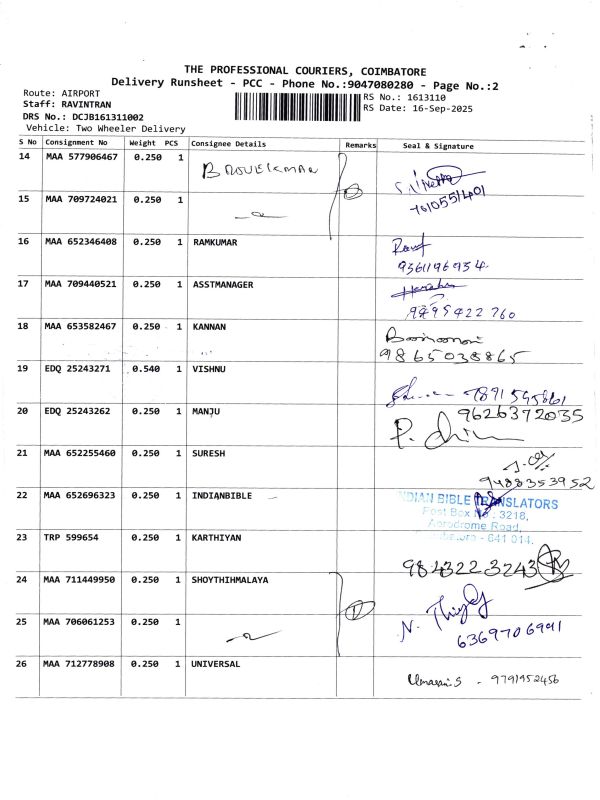 THE PROFESSIONAL COURIERS, COIMBATORE
Delivery Runsheet - PCC - Phone No.:9047080280 - Page No.:2
Route: AIRPORT
Staff: RAVINTRAN
DRS No.: DCJB161311002
Vehicle: Two Wheeler Delivery
RS No.: 1613110
RS Date: 16-Sep-2025
S No Consignment No Weight PCS Consignee Details Remarks Seal & Signature
14 MAA 577906467 0.250 1
15 MAA 709724021 0.250 1
16 MAA 652346408 0.250 1 RAMKUMAR
9361196934
17 MAA 709440521 0.250 1 ASSTMANAGER
9495422760
18 MAA 653582467 0.250 1 KANNAN
9865038865
19 EDQ 25243271 0.540 1 VISHNU
20 EDQ 25243262 0.250 1 MANJU 9626372035
21 MAA 652255460 0.250 1 SURESH
9488353952
22 MAA 652696323 0.250 1 INDIANBIBLE
INDIAN BIBLE TRANSLATORS
Post Box No. 3218,
Aerodrome Road,
- 641 014.
23 TRP 599654 0.250 1 KARTHIYAN
9843223243
24 MAA 711449950 0.250 1 SHOYTHIHMALAYA
25 MAA 706061253 0.250 1
6369706991
26 MAA 712778908 0.250 1 UNIVERSAL
Umarani.S - 9791952456